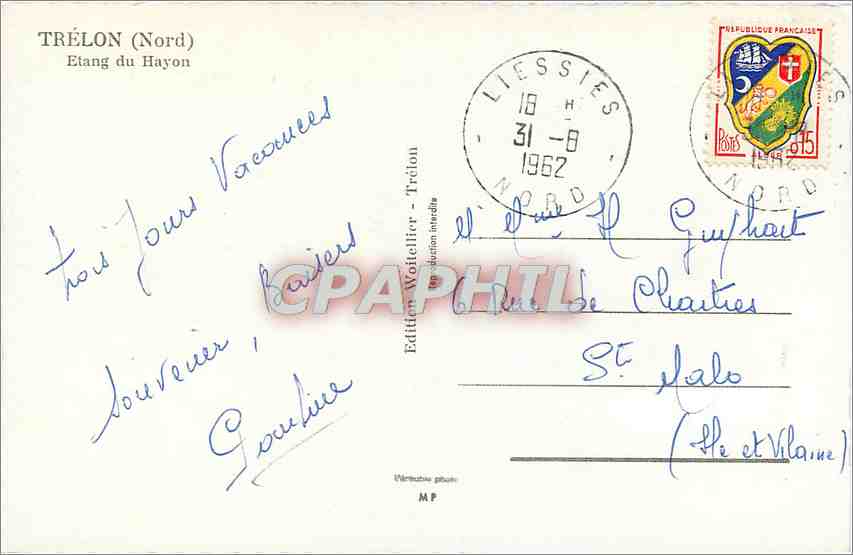 TRÉLON (Nord)
Etang du Hayon
trois jours Vacances
souvenir, Baisers
Edition Woitellier - Trélon
Reproduction interdite
LIESSIES
18 H
31 -8
1962
NORD
REPUBLIQUE FRANÇAISE
POSTES
ALGER
0,15
1962
NORD
et Mme H
6 Rue de Chartres
St Malo
(Ille et Vilaine)
CPAPHIL
Véritable photo
MP